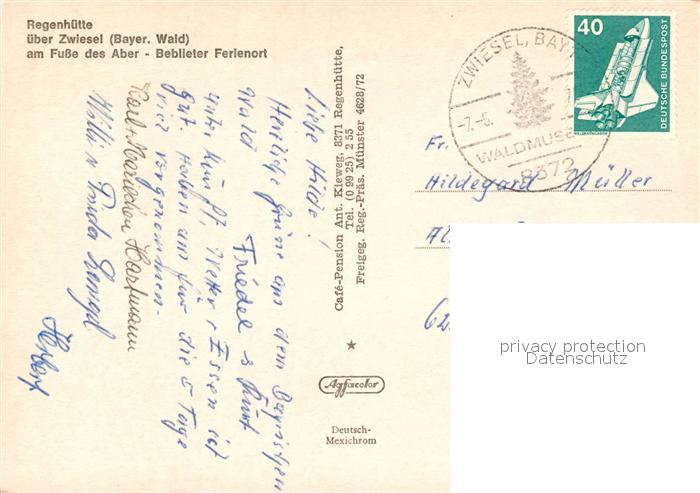 Regenhütte
über Zwiesel (Bayer. Wald)
am Fuße des Aber - Beblieter Ferienort
Liebe Hilde!
Herzliche Grüße aus dem Bayrischen
Wald Friedel & Kurt
Unterkunft, Wetter & Essen ist
gut. Haben uns für die 5 Tage
viel vorgenommen.
Karl + Mariechen Hartmann
Willi
Herbert
Café-Pension Ant. Kieweg, 8371 Regenhütte,
Tel. (0 99 25) 2 55
Freigeg. Reg.-Präs. Münster 4628/72
Agfacolor
Deutsch-
Mexichrom
ZWIESEL, BAY
-7.-6.
WALDMUSE
8372
40
DEUTSCHE BUNDESPOST
WELTRAUMLABOR
Fr.
Hildegard Müller
62
privacy protection
Datenschutz